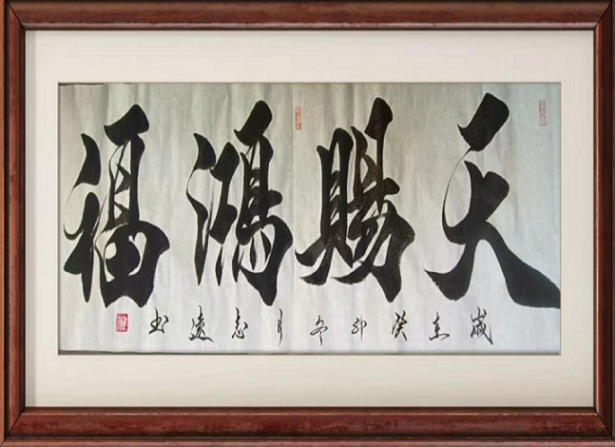 天賜鴻福
歲在癸卯冬月志遠书